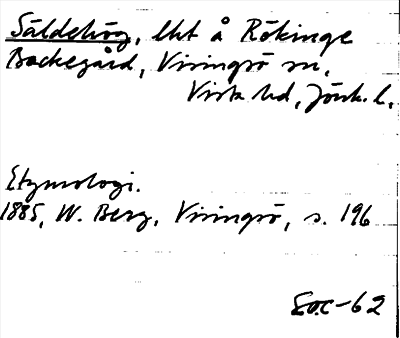 Säldehög, lht å Rökinge
Backegård, Visingsö sn,
Vista hd, Jönk. l.
Etymologi.
1885, W. Berg, Visingsö, s. 196
-62